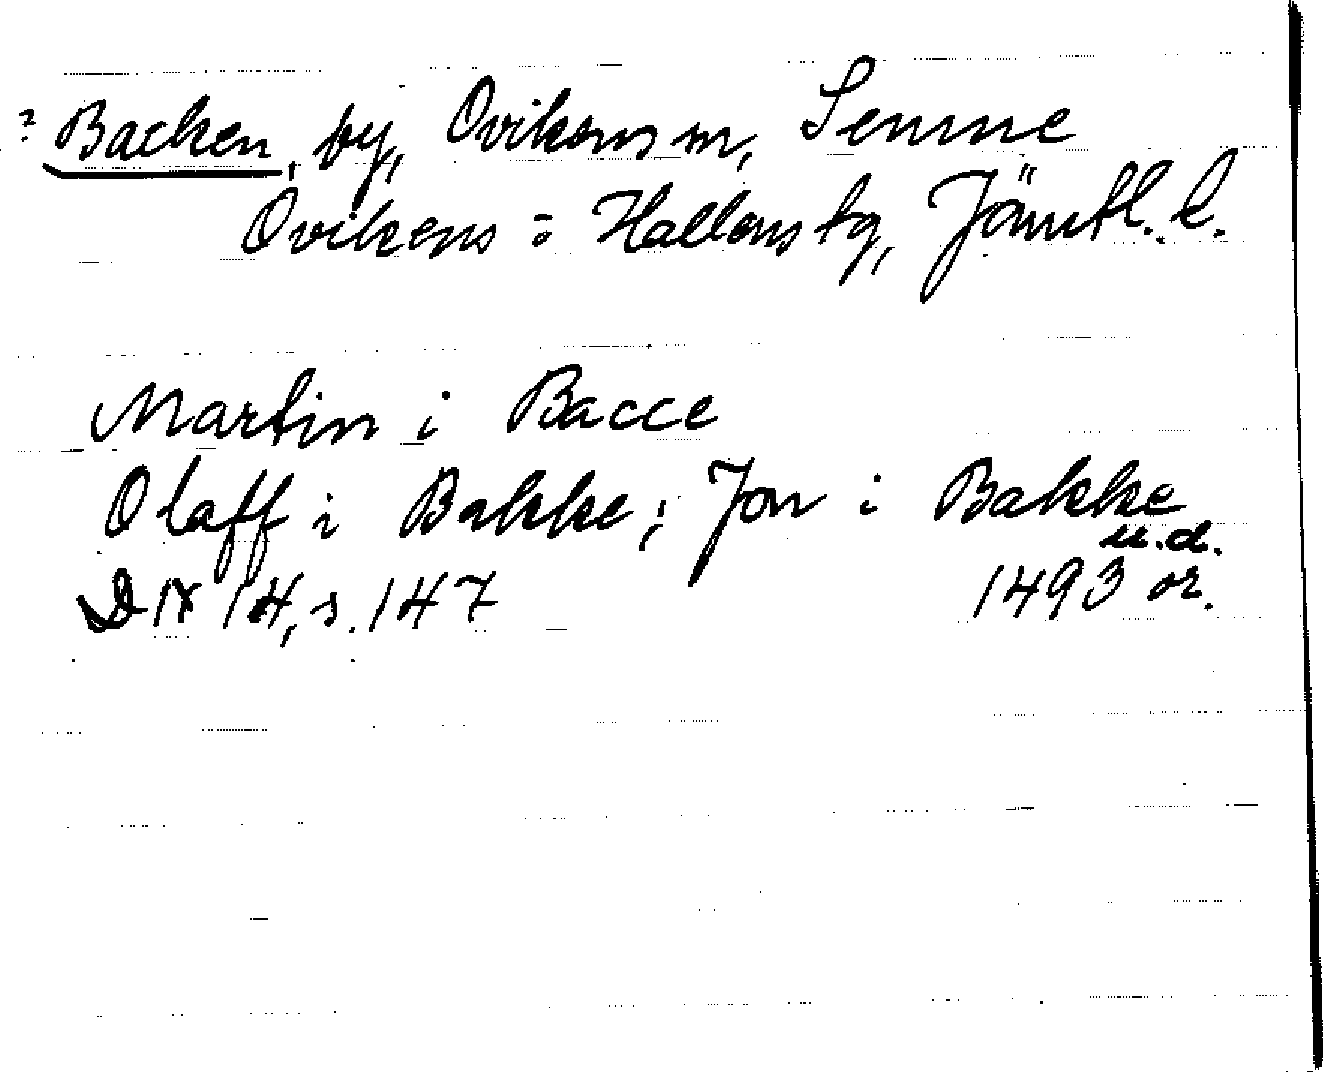 ? Backen, by, Ovikens sn, Semme
Ovikens o Hallens tg, Jämtl. l.
Martin i Bacce
Olaff i Bakke; Jon i Bakke
u.d.
DN 14, s. 147 1493 or.